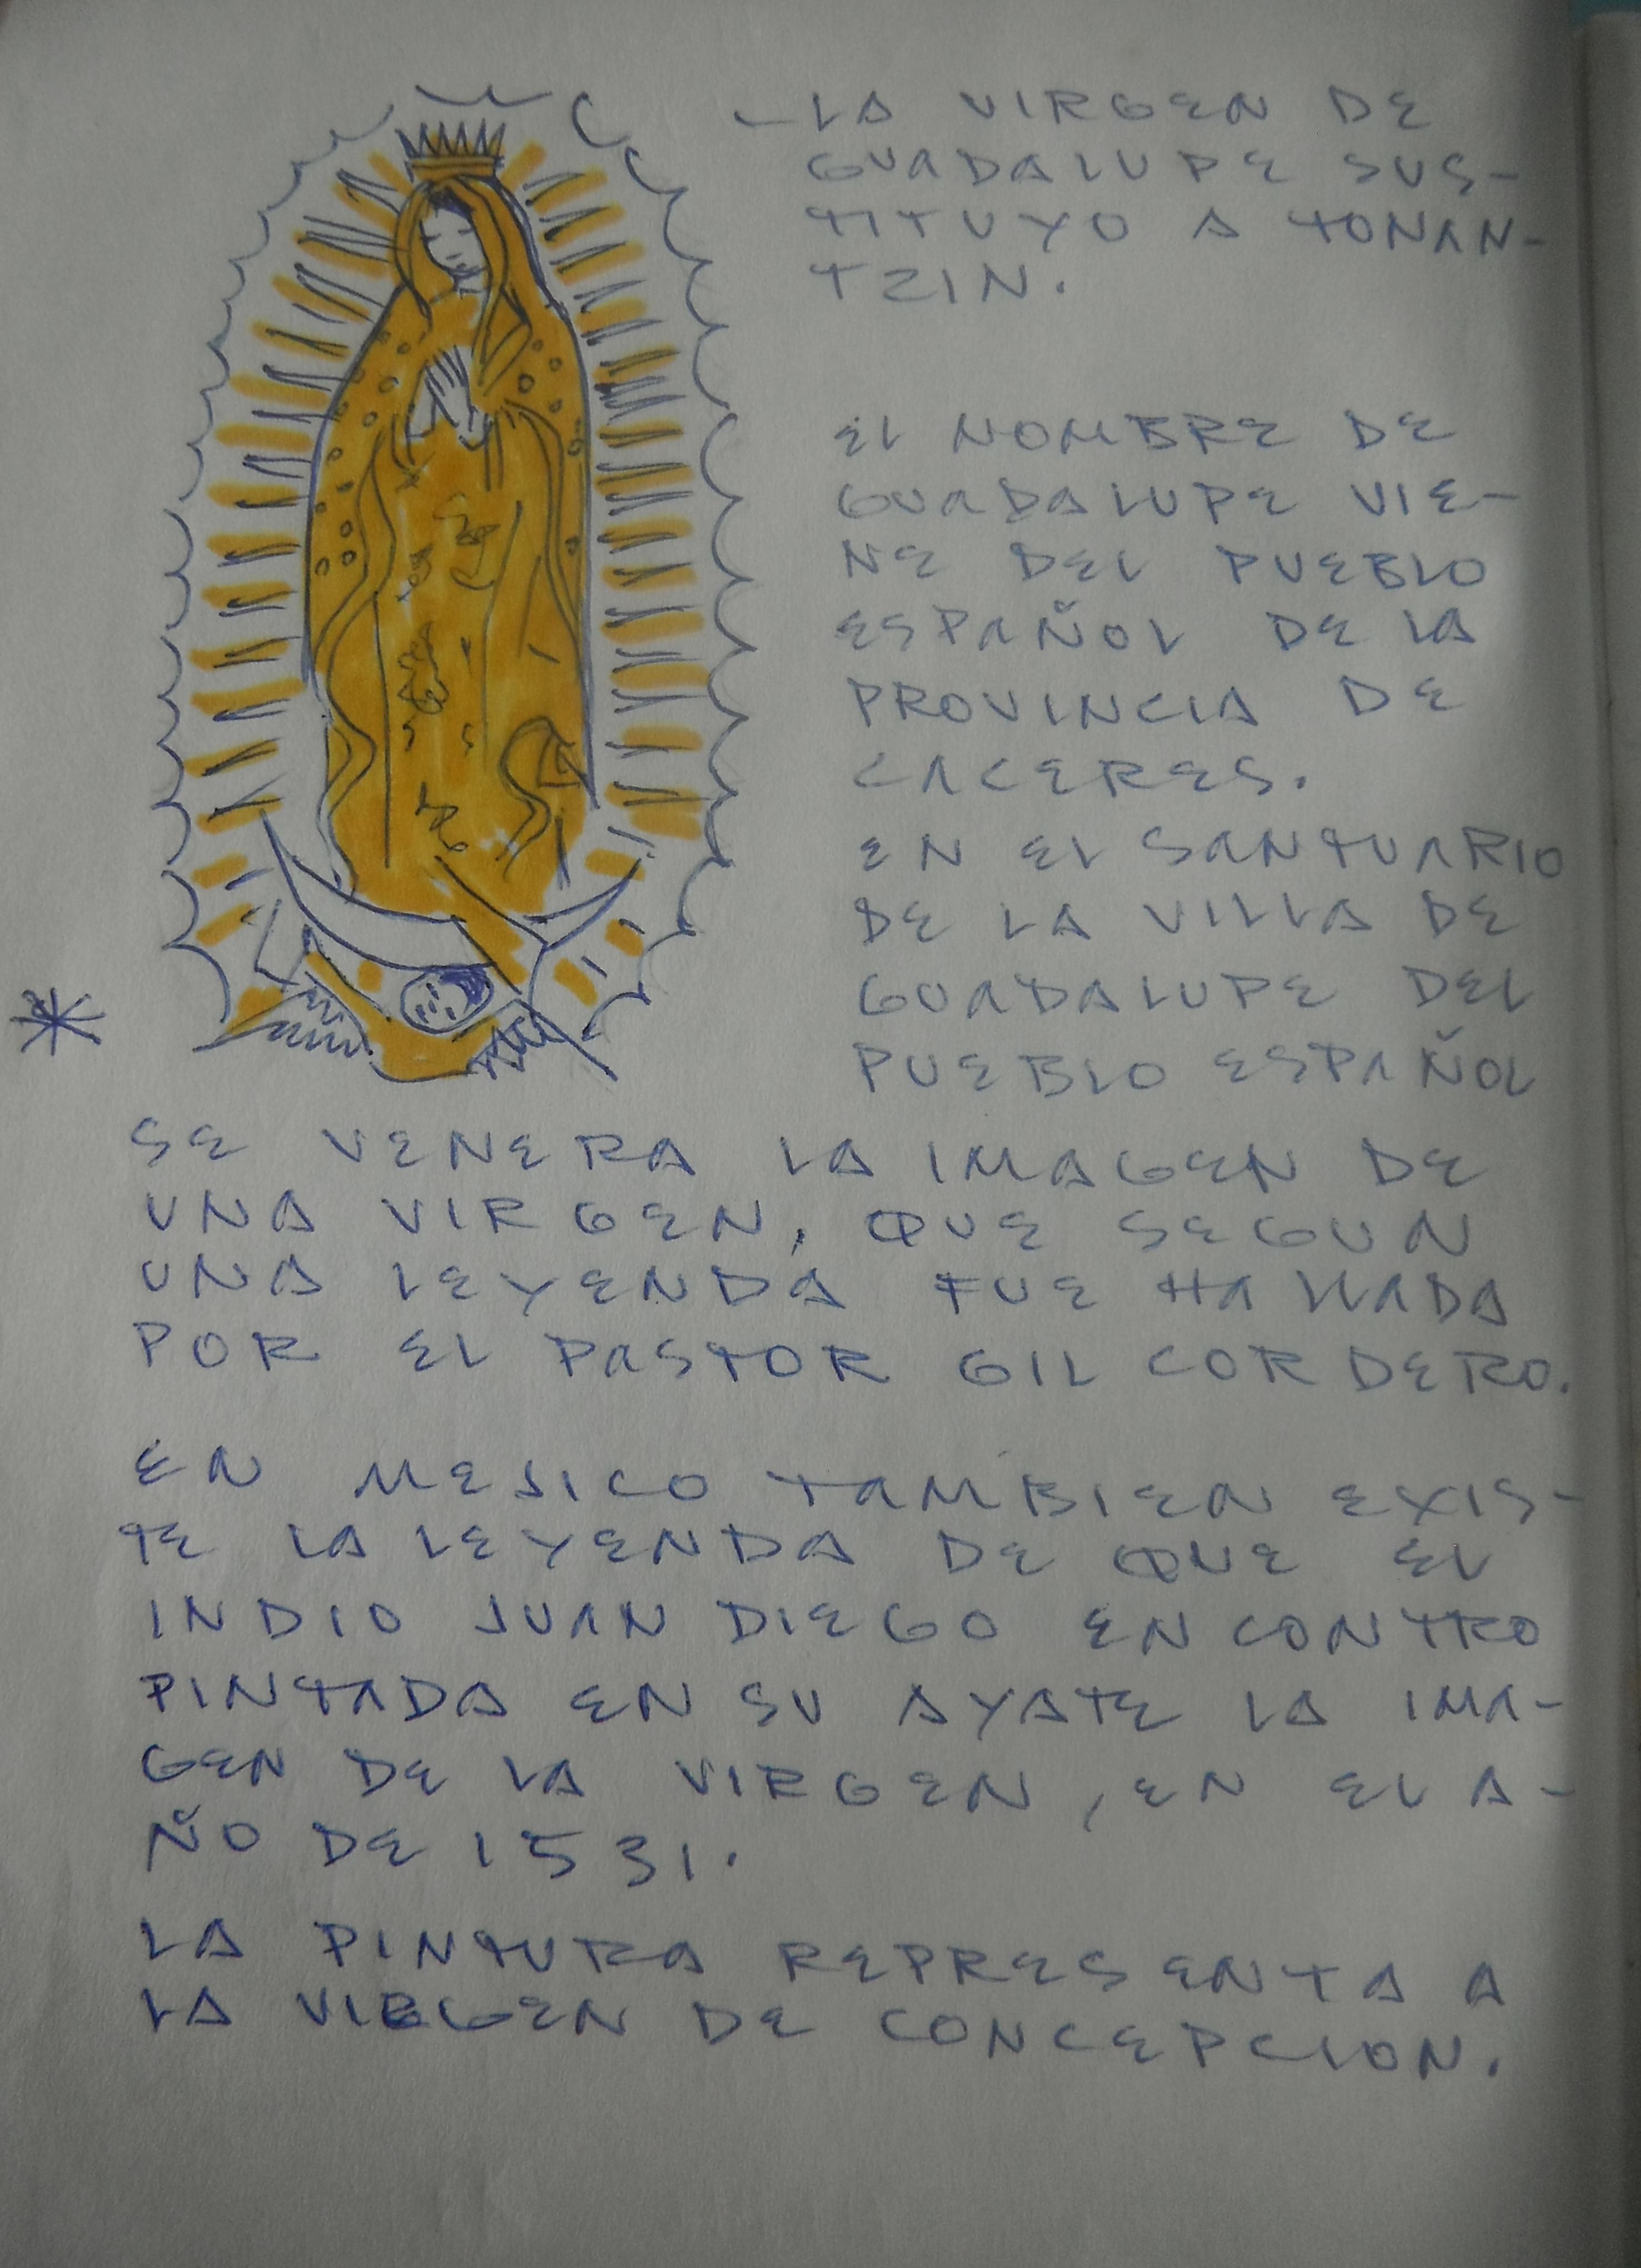 - LA VIRGEN DE
GUADALUPE SUS-
TITUYO A TONAN-
TZIN.
EL NOMBRE DE
GUADALUPE VIE-
NE DEL PUEBLO
ESPAÑOL DE LA
PROVINCIA DE
CACERES.
EN EL SANTUARIO
DE LA VILLA DE
GUADALUPE DEL
PUEBLO ESPAÑOL
SE VENERA LA IMAGEN DE
UNA VIRGEN, QUE SEGUN
UNA LEYENDA FUE HALLADA
POR EL PASTOR GIL CORDERO.
EN MEJICO TAMBIEN EXIS-
TE LA LEYENDA DE QUE EL
INDIO JUAN DIEGO ENCONTRO
PINTADA EN SU AYATE LA IMA-
GEN DE LA VIRGEN, EN EL A-
ÑO DE 1531.
LA PINTURA REPRESENTA A
LA VIRGEN DE CONCEPCION.